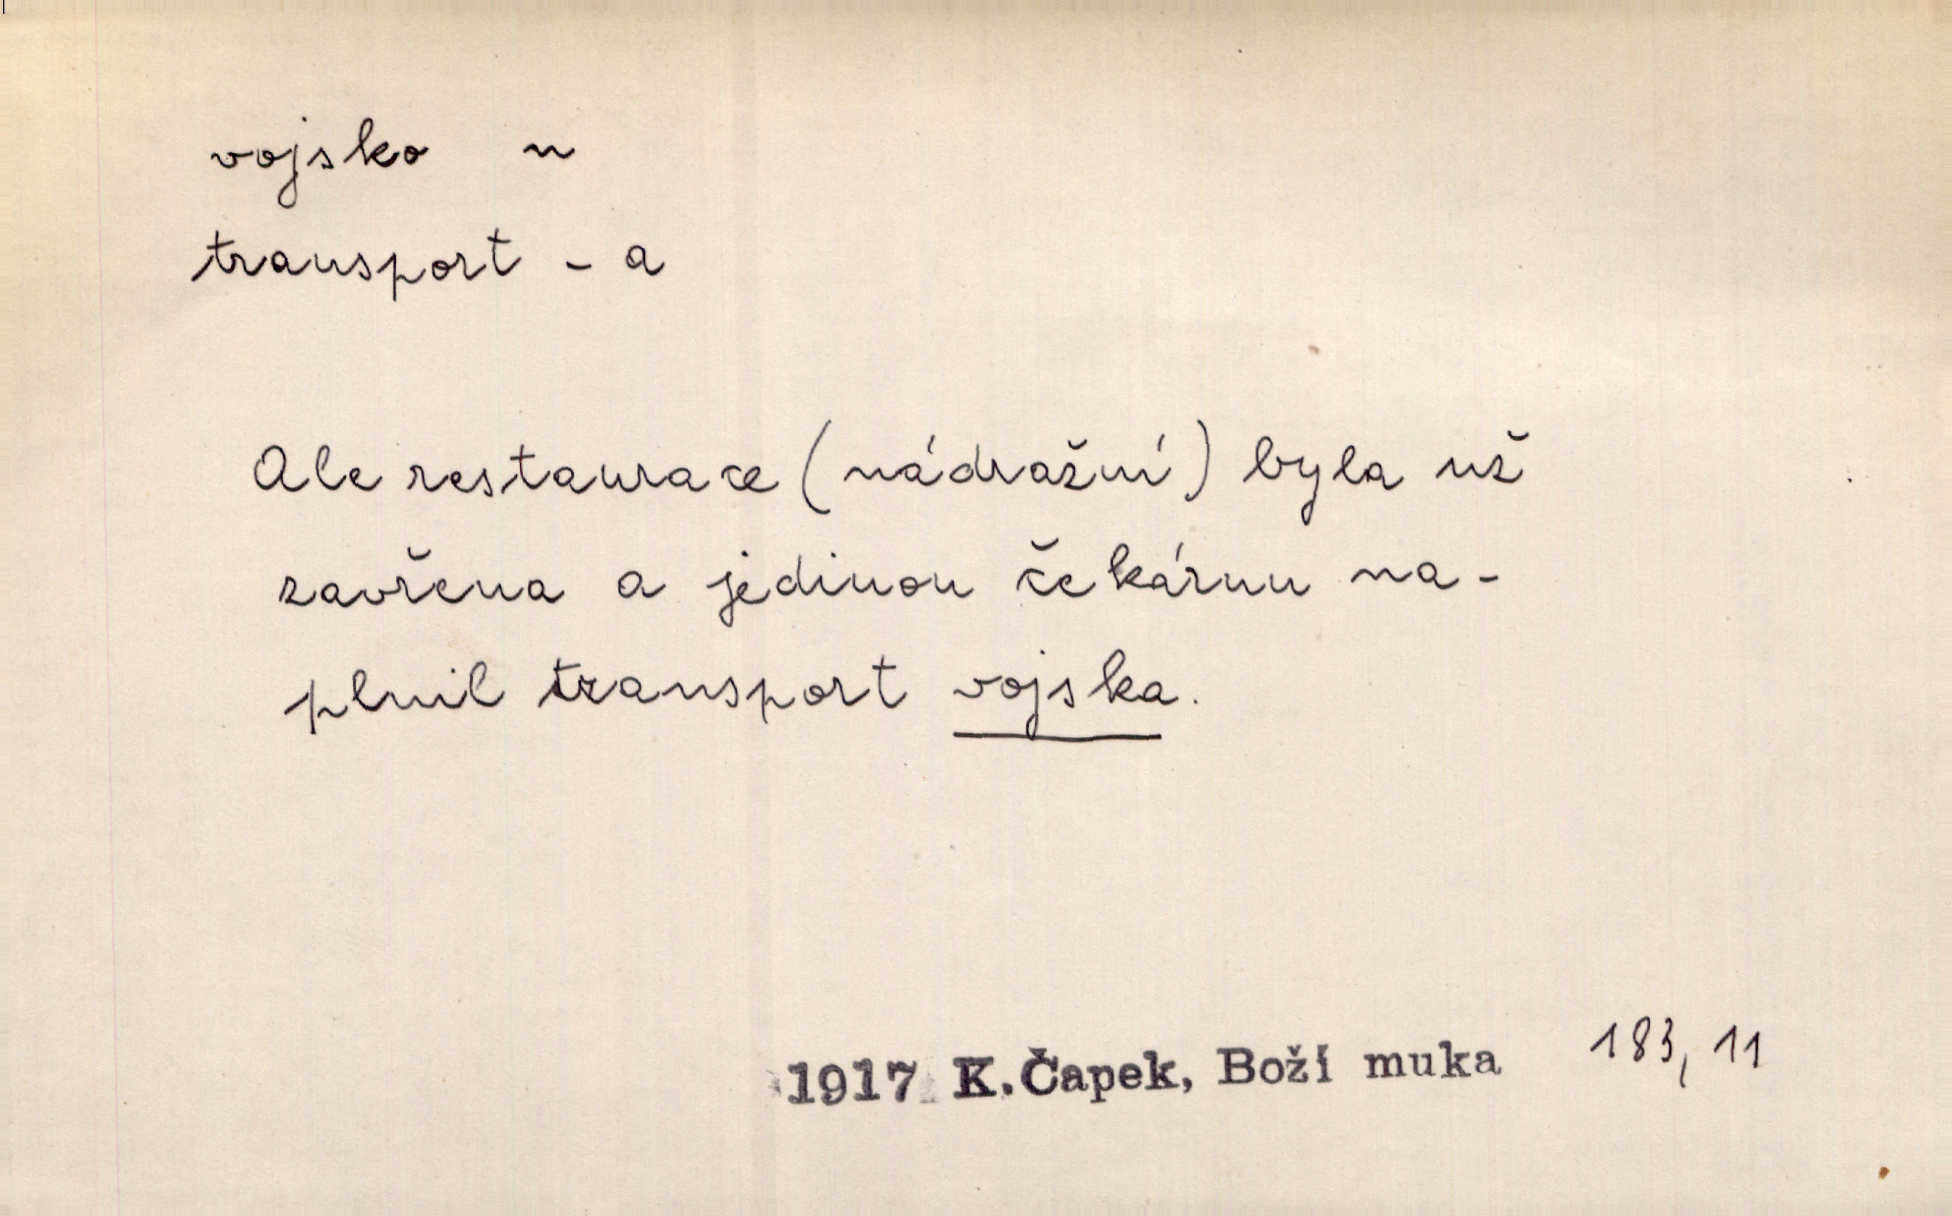 vojsko n
transport - a
Ale restaurace (nádražní) byla už
zavřena a jedinou čekárnu na-
plnil transport vojska.
1917 K. Čapek, Boží muka 183, 11